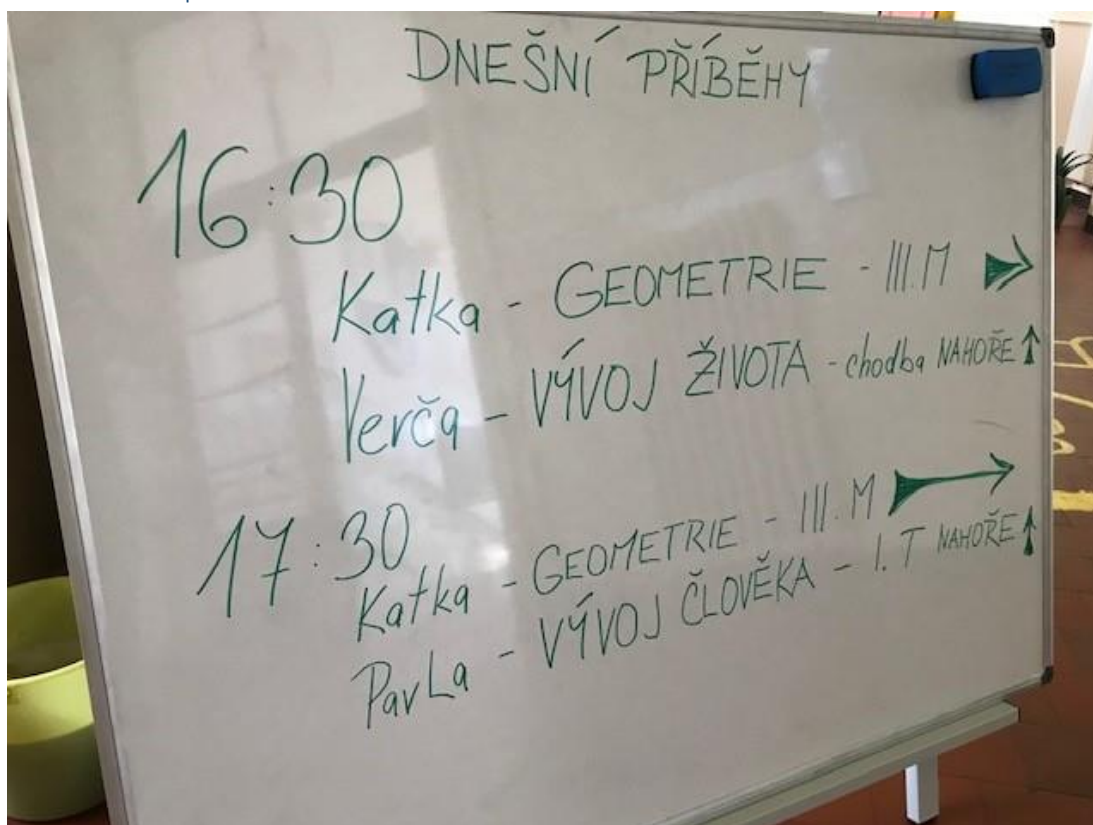 DNEŠNÍ PŘÍBĚHY
16:30
Katka - GEOMETRIE - III.M
Verča - VÝVOJ ŽIVOTA - chodba NAHOŘE
17:30
Katka - GEOMETRIE - III.M
PavLa - VÝVOJ ČLOVĚKA - I.T NAHOŘE